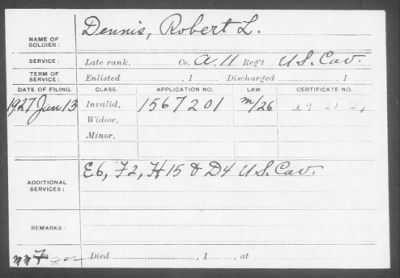 NAME OF SOLDIER: Dennis, Robert L.
SERVICE: Late rank, Co. A. 11 Reg't U S. Cav.
TERM OF SERVICE: Enlisted , 1 Discharged , 1
DATE OF FILING. CLASS. APPLICATION NO. LAW. CERTIFICATE NO.
1927 Jan 13 Invalid, 1567201 m/26
Widow,
Minor,
ADDITIONAL SERVICES: E6, F2, H15 & D4 U S. Cav.
REMARKS:
Died , 1 , at